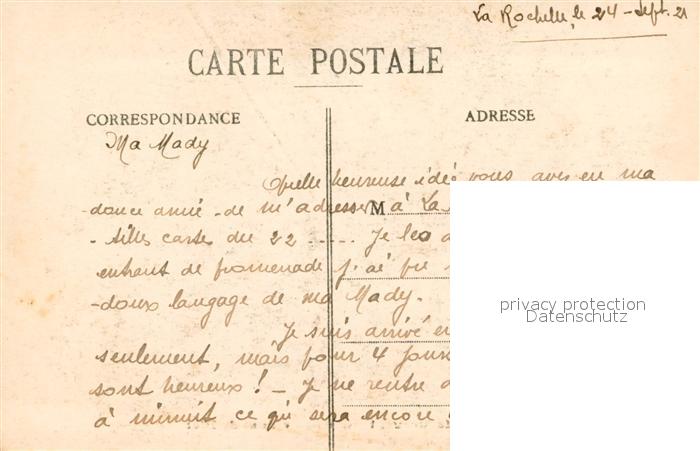 La Rochelle, le 24 - Sept. 21
CARTE POSTALE
CORRESPONDANCE
ADRESSE
Ma Mady
Quelle heureuse idée vous avez eu ma
douce amie - de m'adresser à La
M
- tilles cartes du 22 ..... Je les
entrant de promenade j'ai pu
- doux langage de ma Mady.
Je suis arrivé
seulement, mais pour 4 jours
sont heureux ! - Je ne rentre
à minuit ce qui sera encore
privacy protection
Datenschutz